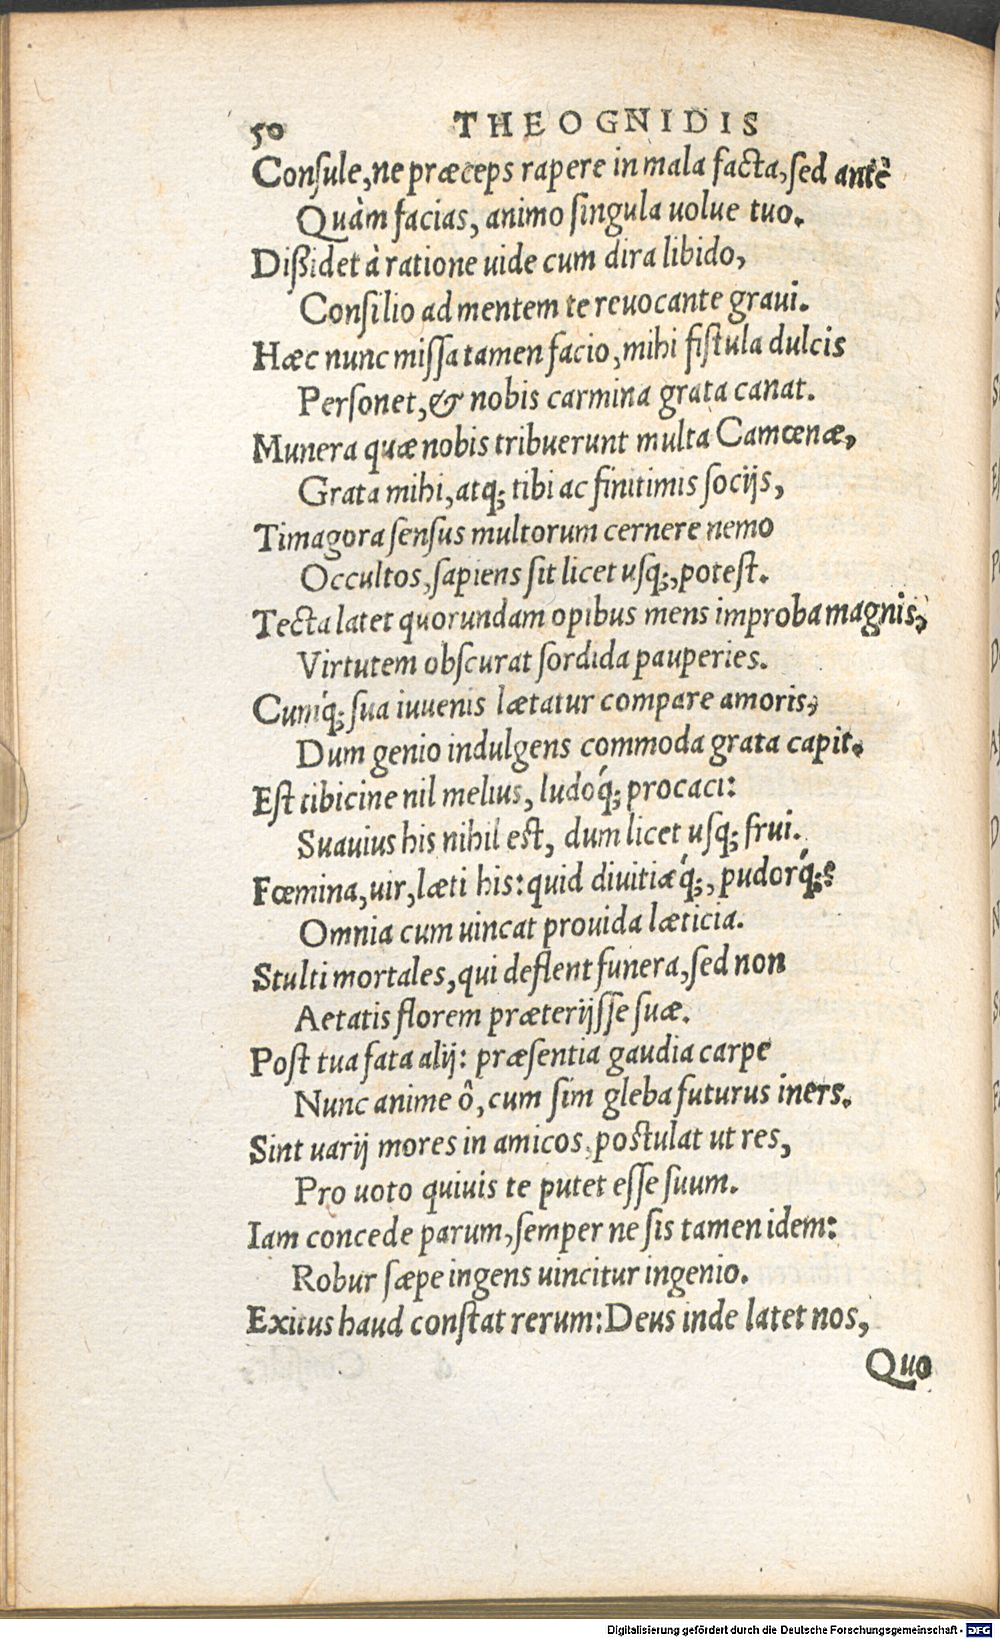 50 THEOGNIDIS
Conſule, ne præceps rapere in mala facta, ſed antè
Quàm facias, animo ſingula uolue tuo.
Dißidet à ratione uide cum dira libido,
Conſilio ad mentem te reuocante graui.
Hæc nunc miſſa tamen facio, mihi fiſtula dulcis
Perſonet, & nobis carmina grata canat.
Munera quæ nobis tribuerunt multa Camœnæ,
Grata mihi, atq; tibi ac finitimis ſocijs,
Timagora ſenſus multorum cernere nemo
Occultos, ſapiens ſit licet uſq;, poteſt.
Tecta latet quorundam opibus mens improba magnis,
Virtutem obſcurat ſordida pauperies.
Cumq́; ſua iuuenis lætatur compare amoris,
Dum genio indulgens commoda grata capit.
Eſt tibicine nil melius, ludoq́; procaci:
Suauius his nihil eſt, dum licet uſq; frui.
Fœmina, uir, læti his: quid diuitiæq́;, pudorq́;?
Omnia cum uincat prouida læticia.
Stulti mortales, qui deflent funera, ſed non
Aetatis florem præterijſſe ſuæ.
Poſt tua fata alij: præſentia gaudia carpe
Nunc anime ô, cum ſim gleba futurus iners.
Sint uarij mores in amicos, poſtulat ut res,
Pro uoto quiuis te putet eſſe ſuum.
Iam concede parum, ſemper ne ſis tamen idem:
Robur ſæpe ingens uincitur ingenio.
Exitus haud conſtat rerum: Deus inde latet nos,
Quo
Digitalisierung gefördert durch die Deutsche Forschungsgemeinschaft - DFG